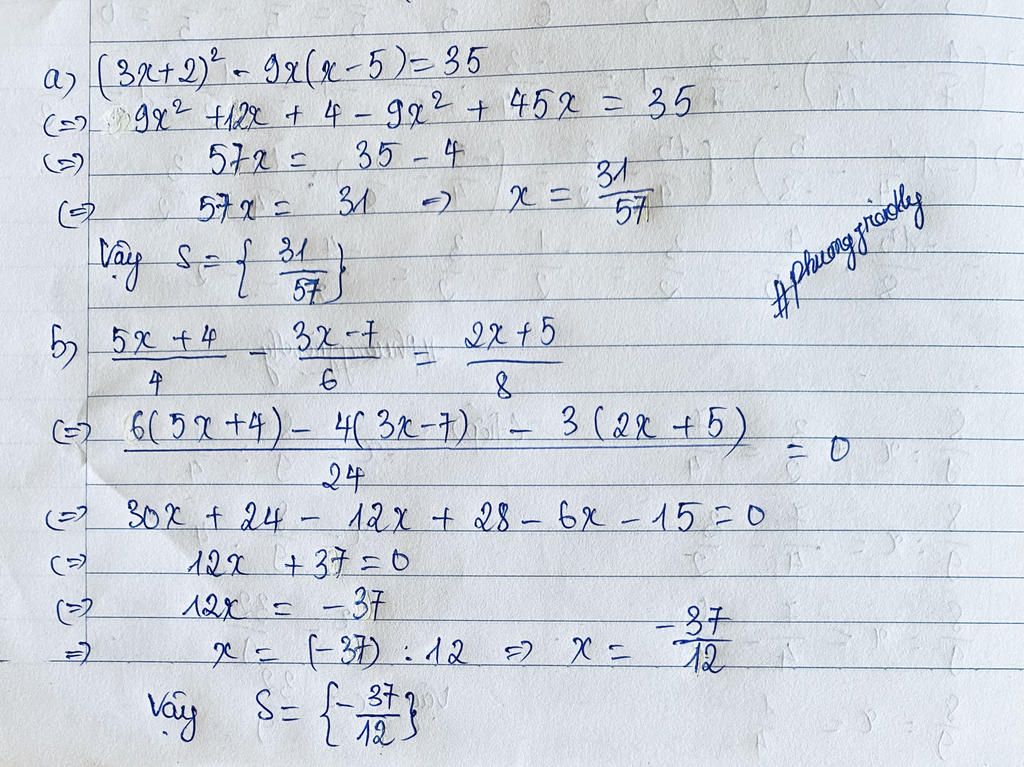 a) (3x+2)² - 9x(x-5) = 35
(=) 9x² + 12x + 4 - 9x² + 45x = 35
(=) 57x = 35 - 4
(=) 57x = 31 => x = 31/57
Vậy S = { 31/57 }
#phuonggiadly
b) (5x+4)/4 - (3x-7)/6 = (2x+5)/8
(=) (6(5x+4) - 4(3x-7) - 3(2x+5))/24 = 0
(=) 30x + 24 - 12x + 28 - 6x - 15 = 0
(=) 12x + 37 = 0
(=) 12x = -37
=> x = (-37) : 12 => x = -37/12
Vậy S = { -37/12 }